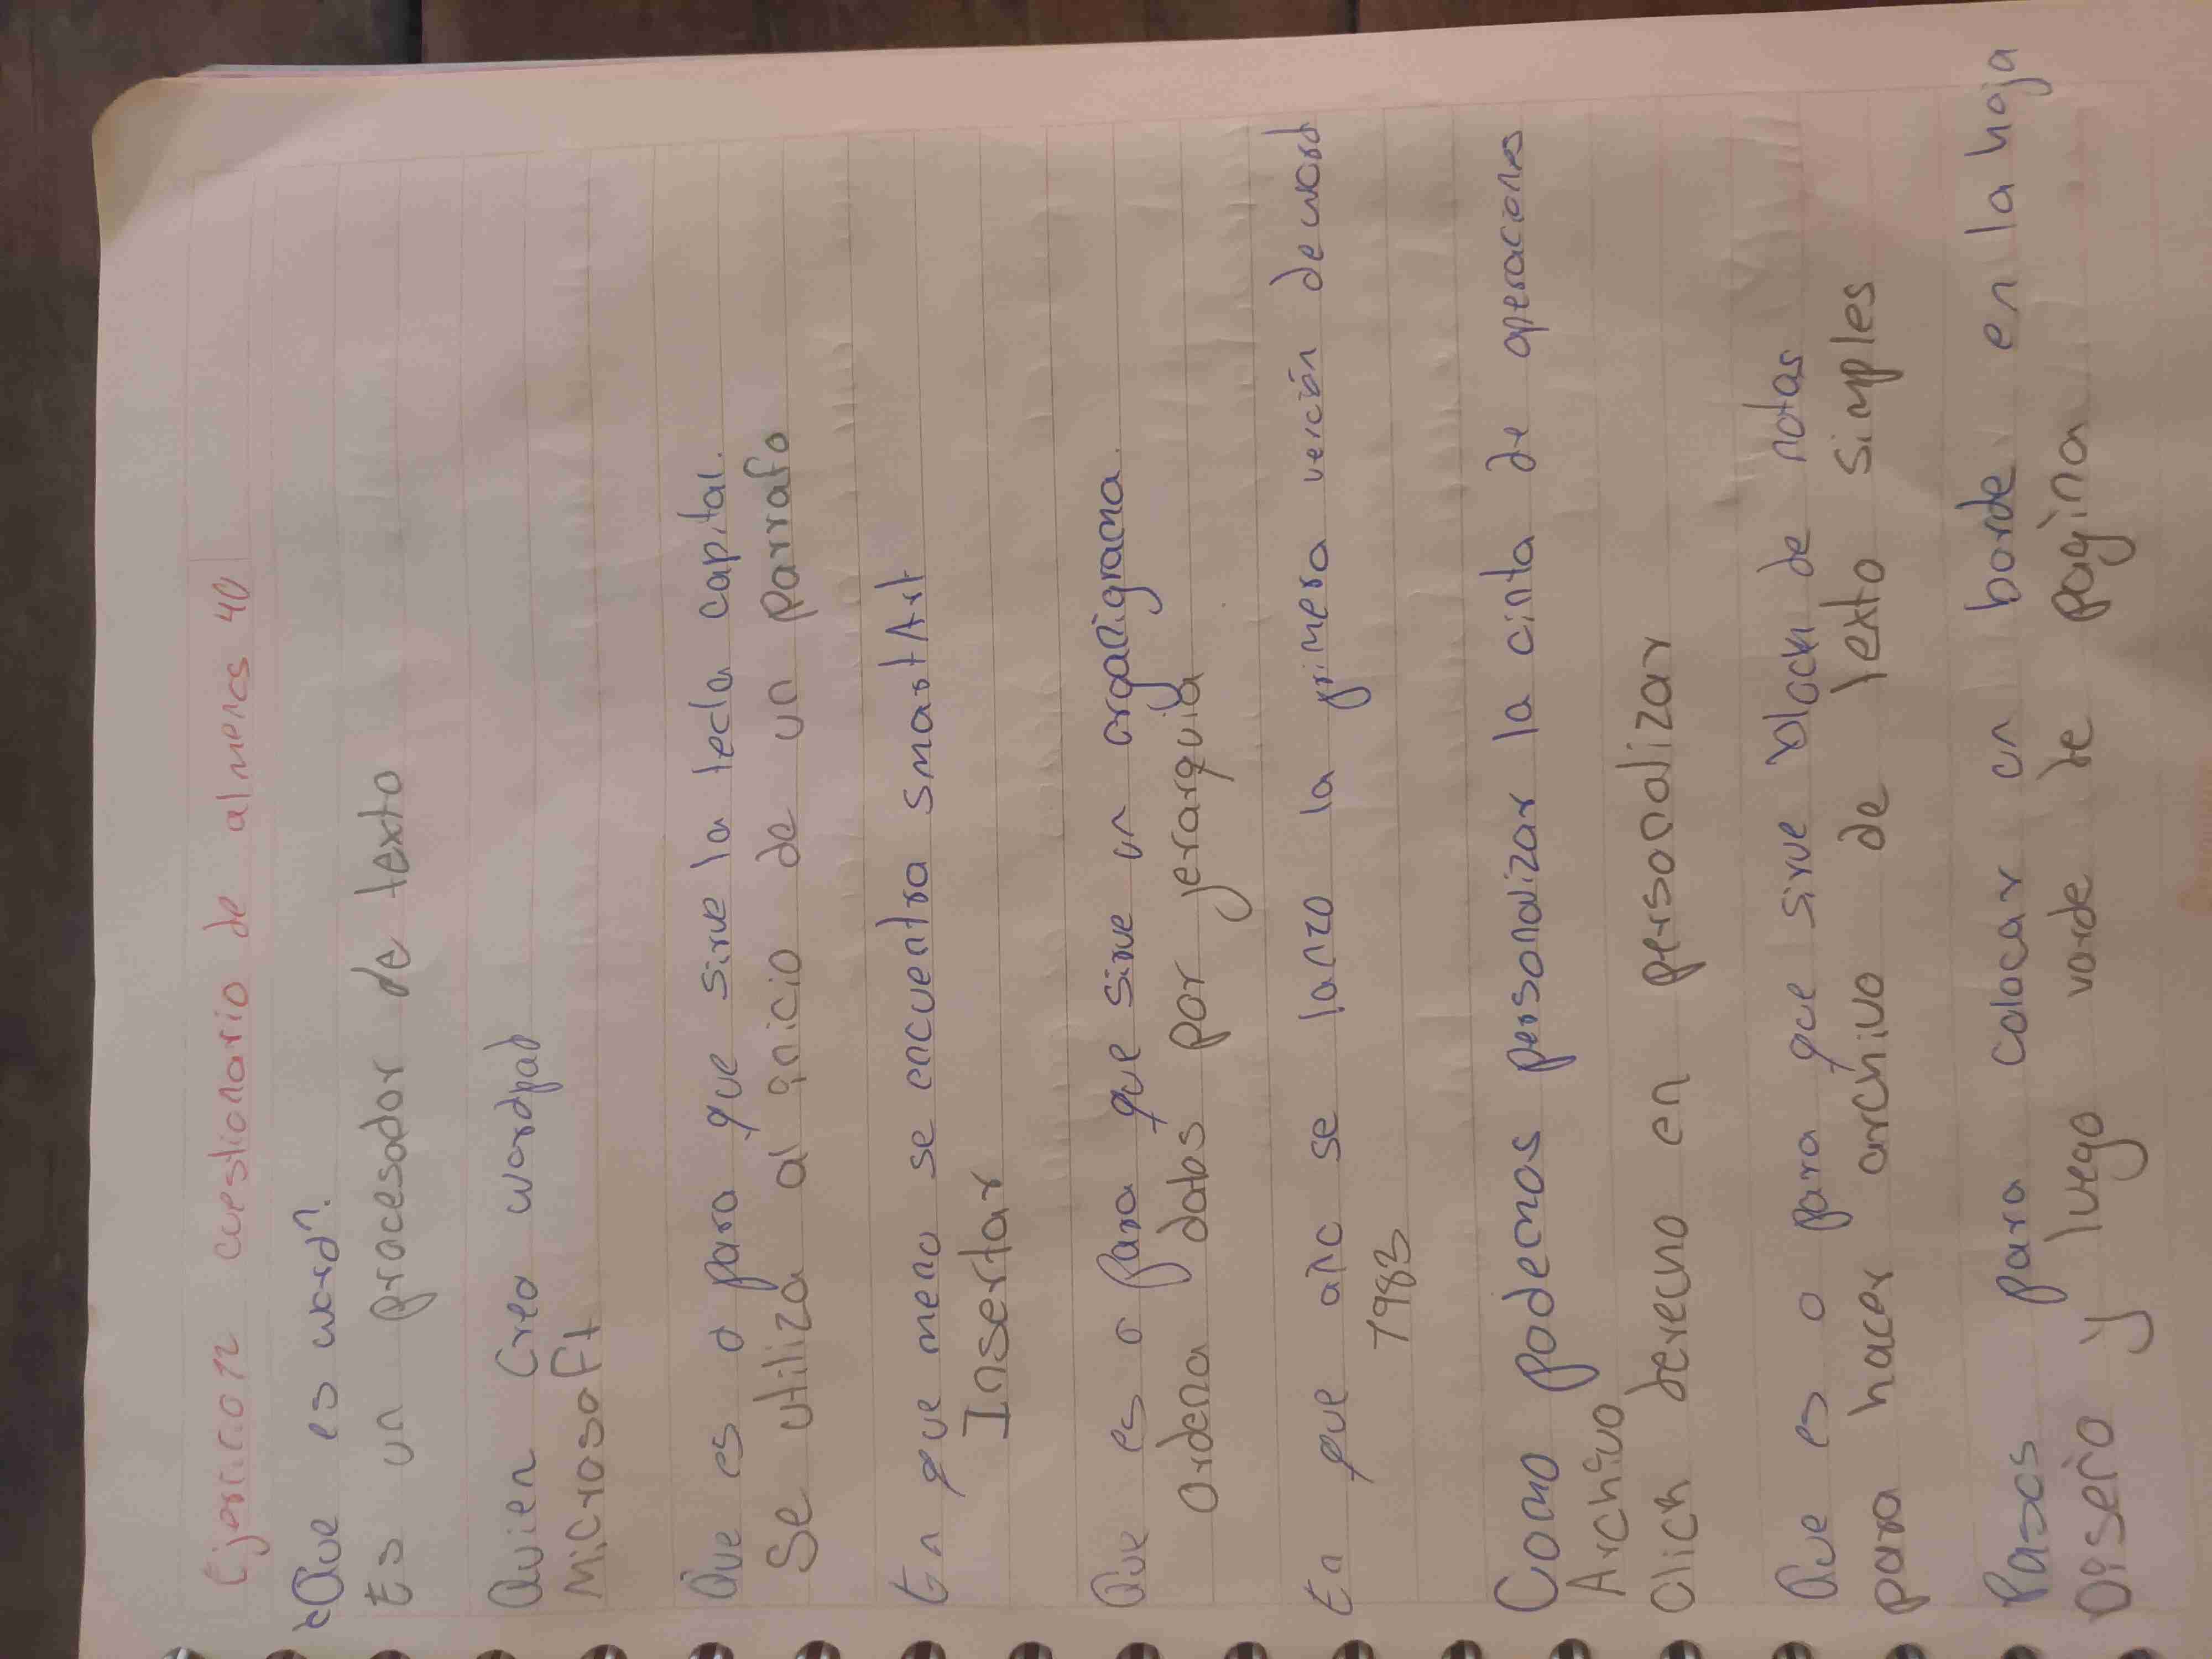 Ejercicio 12 cuestionario de al menos 40
¿Que es word?
Es un procesador de texto
Quien Creo wordpad
Microsoft
Que es o para que sirve la tecla capital.
Se utiliza al inicio de un parrafo
En que menu se encuentra SmartArt
Insertar
Que es o para que sirve un organigrama.
Ordena datos por jerarquia
En que año se lanzo la primera verción de word
1983
Como podemos personalizar la cinta de operaciones
Archivo
Click derecho en personalizar
Que es o para que sirve block de notas
para hacer archivo de texto simples
Pasos para colocar un borde en la hoja
Diseño y luego vorde de pagina